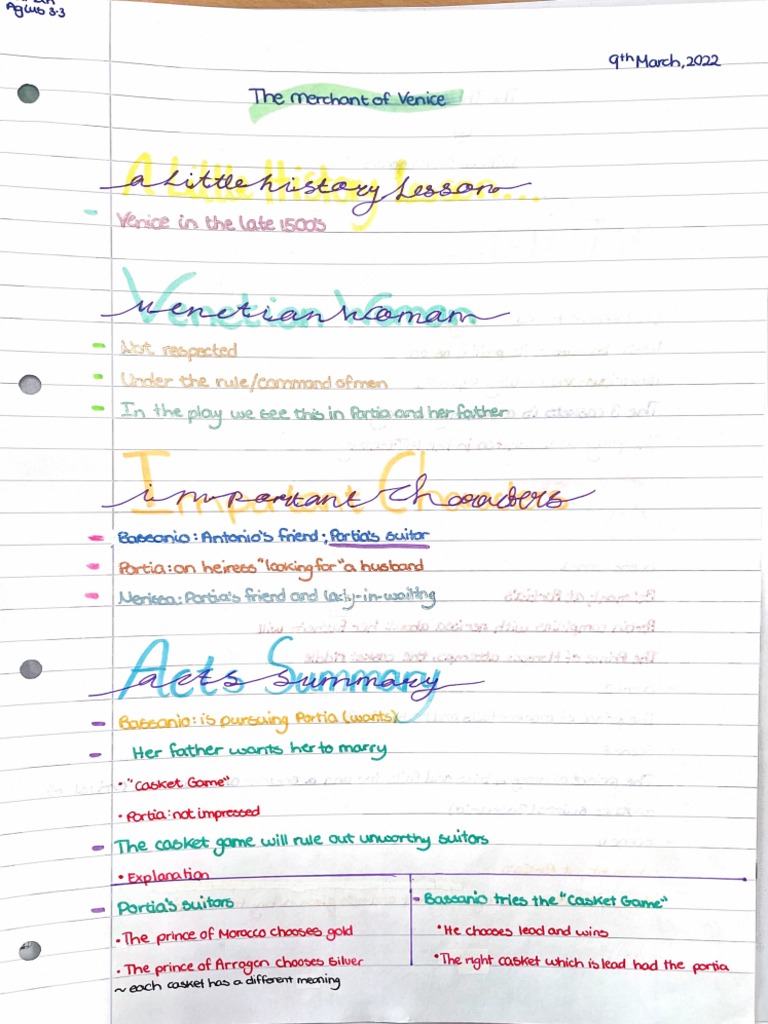 Ag Lub 3.3
9th March, 2022
The merchant of Venice
A Little History Lesson...
Venice in the late 1500's
Venetian Woman
- Not respected
- Under the rule/command of men
- In the play we see this in Portia and her father
Important Characters
- Bassanio: Antonio's friend; Portia's suitor
- Portia: an heiress "looking for" a husband
- Nerissa: Portia's friend and lady-in-waiting
Acts Summary
- Bassanio: is pursuing Portia (wants)
- Her father wants her to marry
• "Casket Game"
• Portia: not impressed
- The casket game will rule out unworthy suitors
• Explanation
- Portia's suitors
• The prince of Morocco chooses gold
• The prince of Arragon chooses Silver
~ each casket has a different meaning
- Bassanio tries the "Casket Game"
• He chooses lead and wins
• The right casket which is lead had the portia